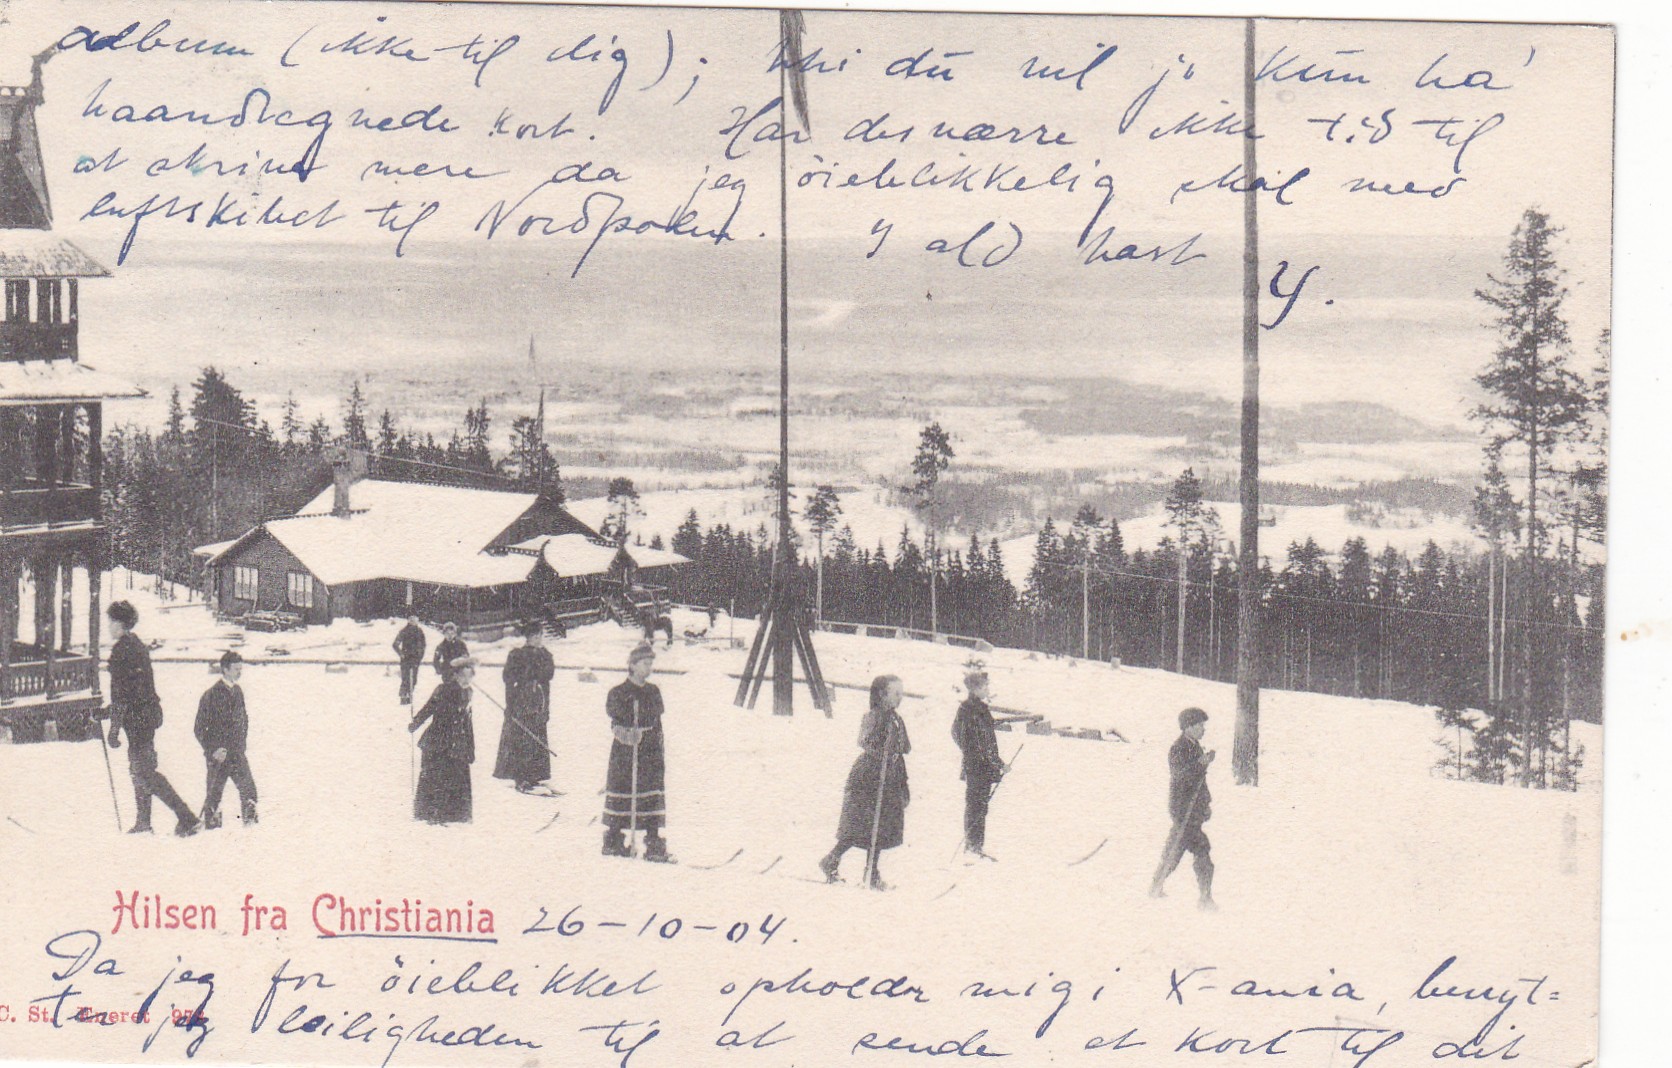 album (ikke til dig); thi du vil jo kun ha'
haandtegnede kort. Har desværre ikke tid til
at skrive mere da jeg öieblikkelig skal med
luftskibet til Nordpolen. I all hast
Y.
Hilsen fra Christiania 26-10-04.
Da jeg for öieblikket opholder mig i X-ania, benyt=
ter jeg leiligheden til at sende et kort til dit
C. St. Eneret